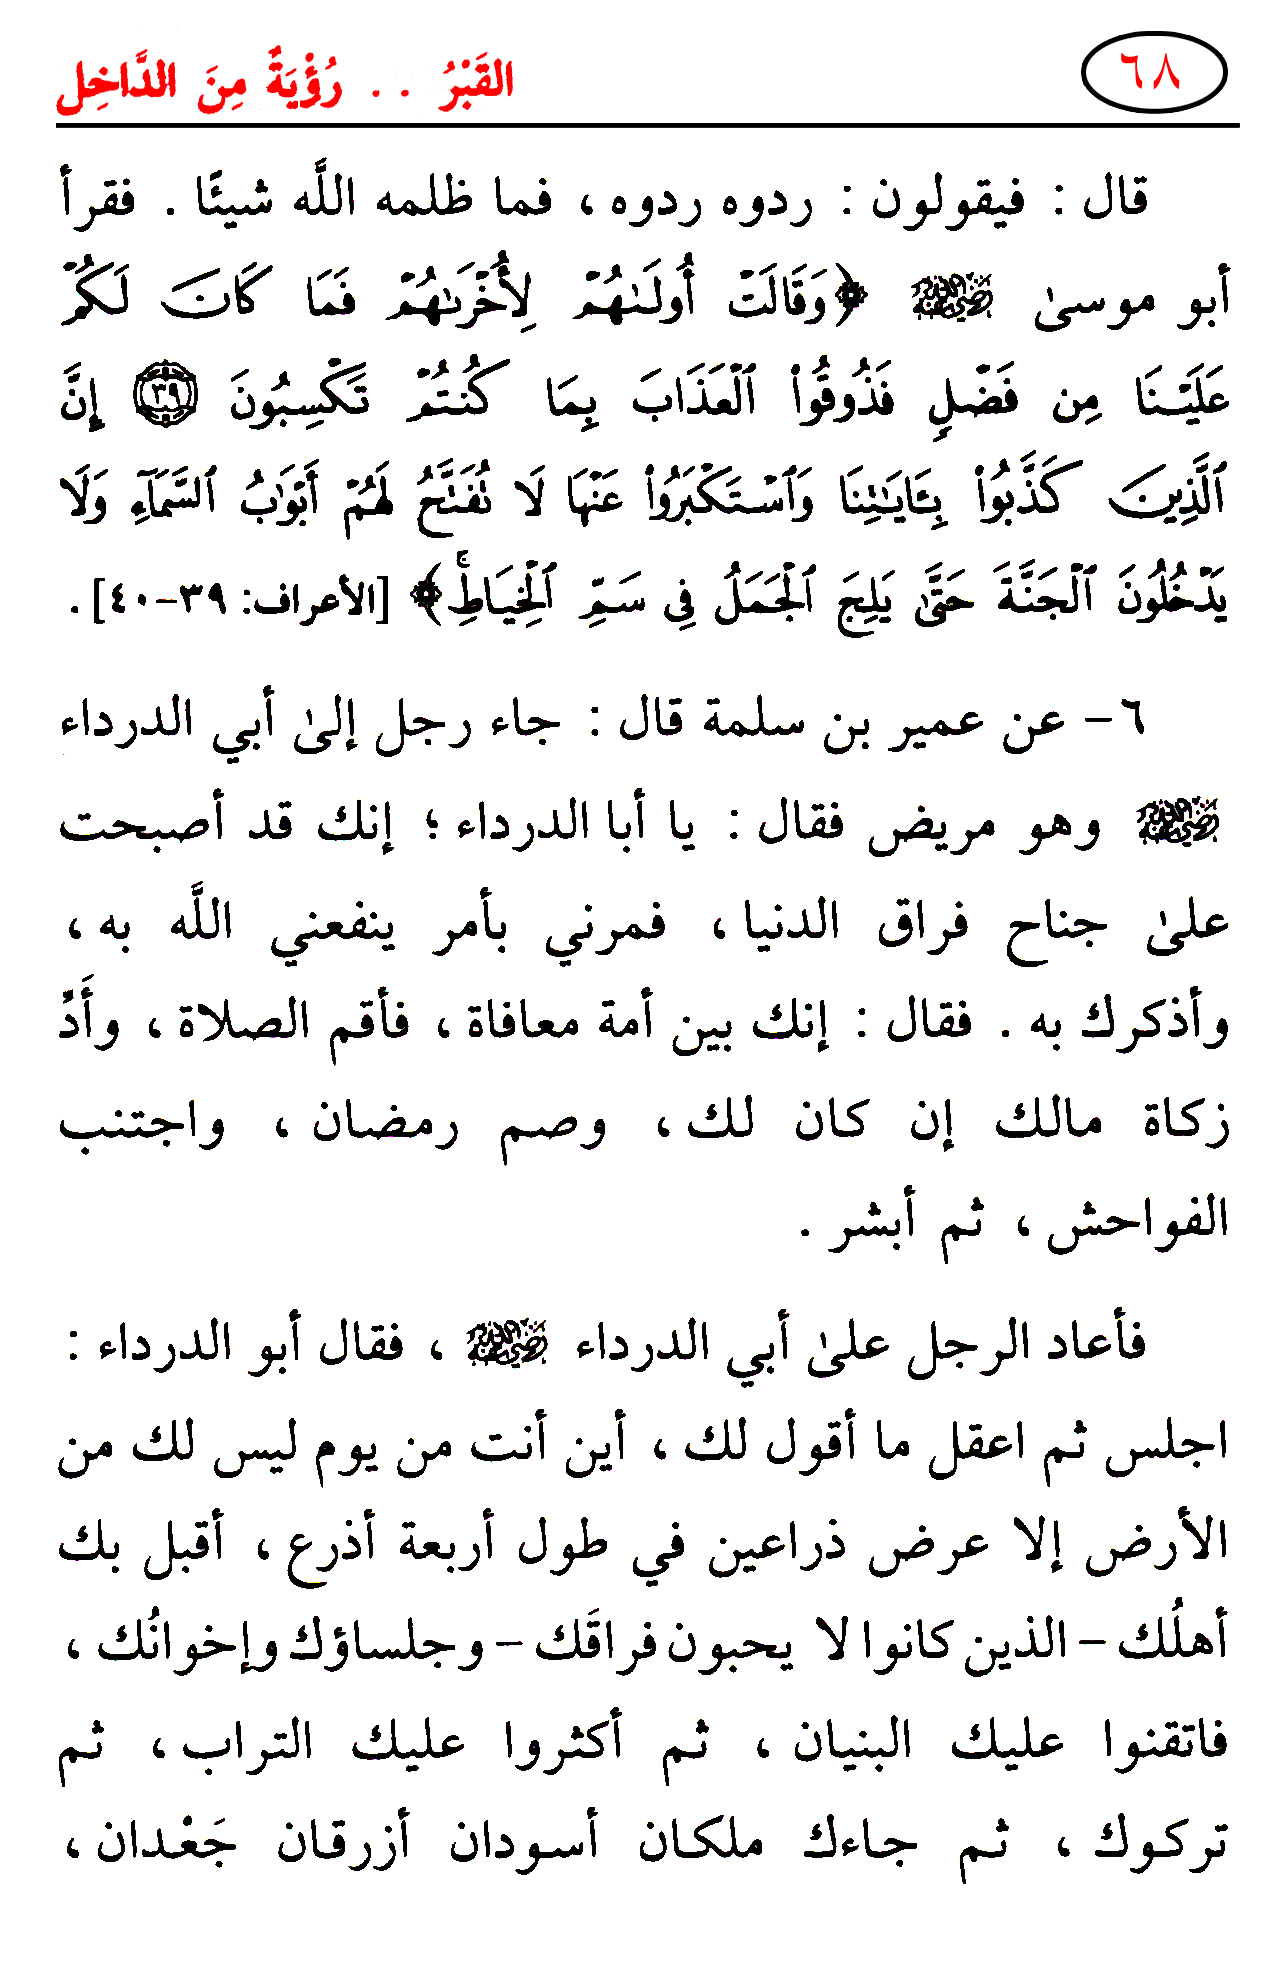 ٦٨
القَبْرُ . . رُؤْيَةٌ مِنَ الدَّاخِل
قال : فيقولون : ردوه ردوه ، فما ظلمه اللَّه شيئًا . فقرأ
أبو موسىٰ رضي الله عنه ﴿وَقَالَتْ أُولَىٰهُمْ لِأُخْرَىٰهُمْ فَمَا كَانَ لَكُمْ
عَلَيْنَا مِن فَضْلٍ فَذُوقُوا۟ ٱلْعَذَابَ بِمَا كُنتُمْ تَكْسِبُونَ ٣٩ إِنَّ
ٱلَّذِينَ كَذَّبُوا۟ بِـَٔايَـٰتِنَا وَٱسْتَكْبَرُوا۟ عَنْهَا لَا تُفَتَّحُ لَهُمْ أَبْوَٰبُ ٱلسَّمَآءِ وَلَا
يَدْخُلُونَ ٱلْجَنَّةَ حَتَّىٰ يَلِجَ ٱلْجَمَلُ فِى سَمِّ ٱلْخِيَاطِۚ﴾ [الأعراف: ٣٩-٤٠] .
٦- عن عمير بن سلمة قال : جاء رجل إلىٰ أبي الدرداء
رضي الله عنه وهو مريض فقال : يا أبا الدرداء ؛ إنك قد أصبحت
علىٰ جناح فراق الدنيا ، فمرني بأمر ينفعني اللَّه به ،
وأذكرك به . فقال : إنك بين أمة معافاة ، فأقم الصلاة ، وأَدِّ
زكاة مالك إن كان لك ، وصم رمضان ، واجتنب
الفواحش ، ثم أبشر .
فأعاد الرجل علىٰ أبي الدرداء رضي الله عنه ، فقال أبو الدرداء :
اجلس ثم اعقل ما أقول لك ، أين أنت من يوم ليس لك من
الأرض إلا عرض ذراعين في طول أربعة أذرع ، أقبل بك
أهلُك - الذين كانوا لا يحبون فراقَك - وجلساؤك وإخوانُك ،
فاتقنوا عليك البنيان ، ثم أكثروا عليك التراب ، ثم
تركوك ، ثم جاءك ملكان أسودان أزرقان جَعْدان ،